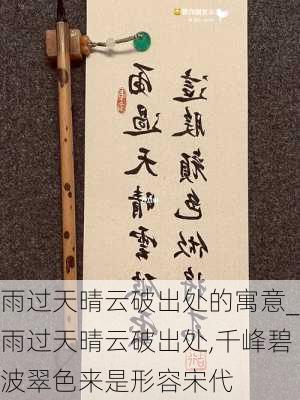 雨過天晴雲破
這般顏色做將
雨过天晴云破出处的寓意_
雨过天晴云破出处,千峰碧
波翠色来是形容宋代